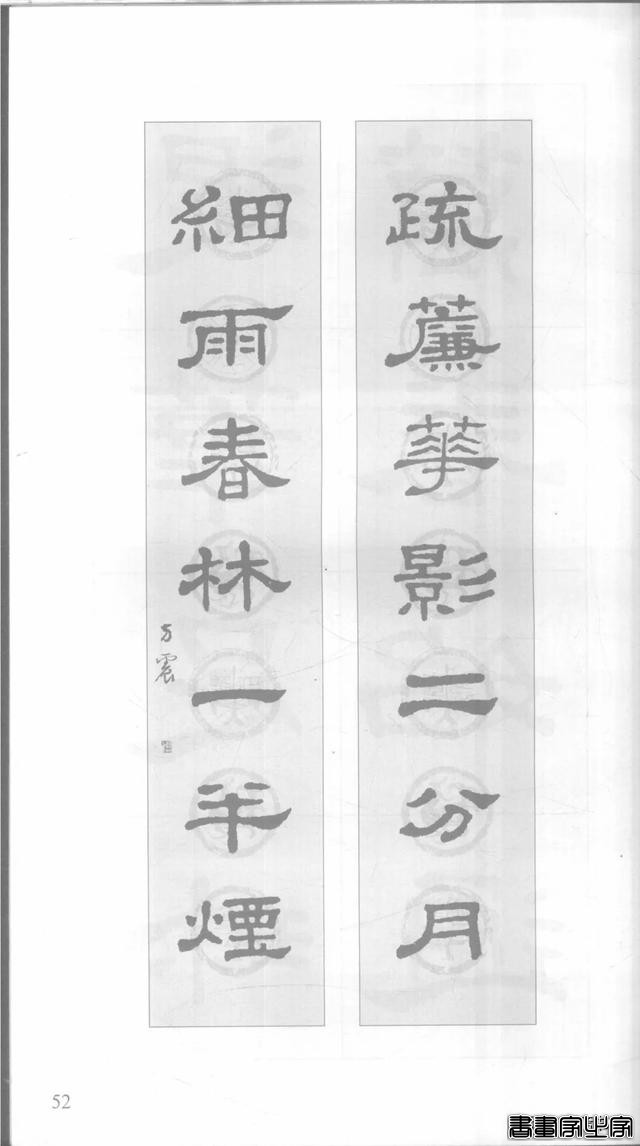 疏薕華影二分月
細雨春林一半煙
方震
52
書畫家必字